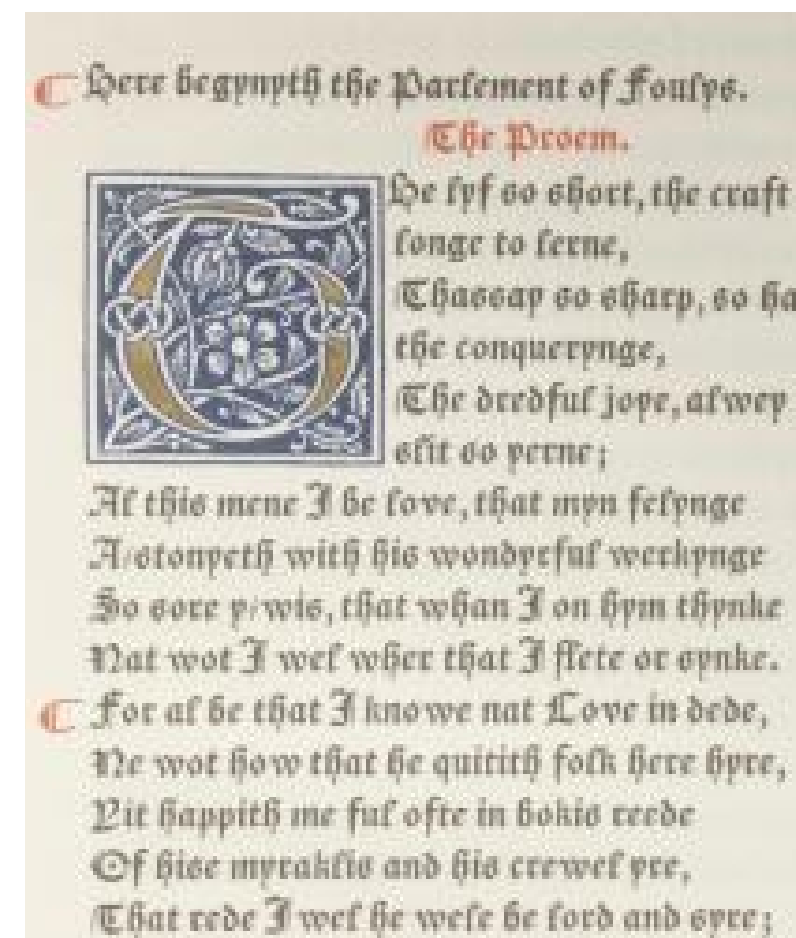 Here begynyth the Parlement of Foulys.
The Proem.
The lyf so short, the craft
longe to lerne,
Thassay so sharp, so ha
the conquerynge,
The dredful joye, alwey
slit so yerne;
Al this mene I be love, that myn felynge
A-stonyeth with his wondyrful werkynge
So sore y-wis, that whan I on hym thynke
Nat wot I wel wher that I flete or synke.
For al be that I knowe nat Love in dede,
Ne wot how that he quitith folk here hyre,
Yit happith me ful ofte in bokis reede
Of hise myraklis and his crewel yre,
That rede I wel he wele be lord and syre;